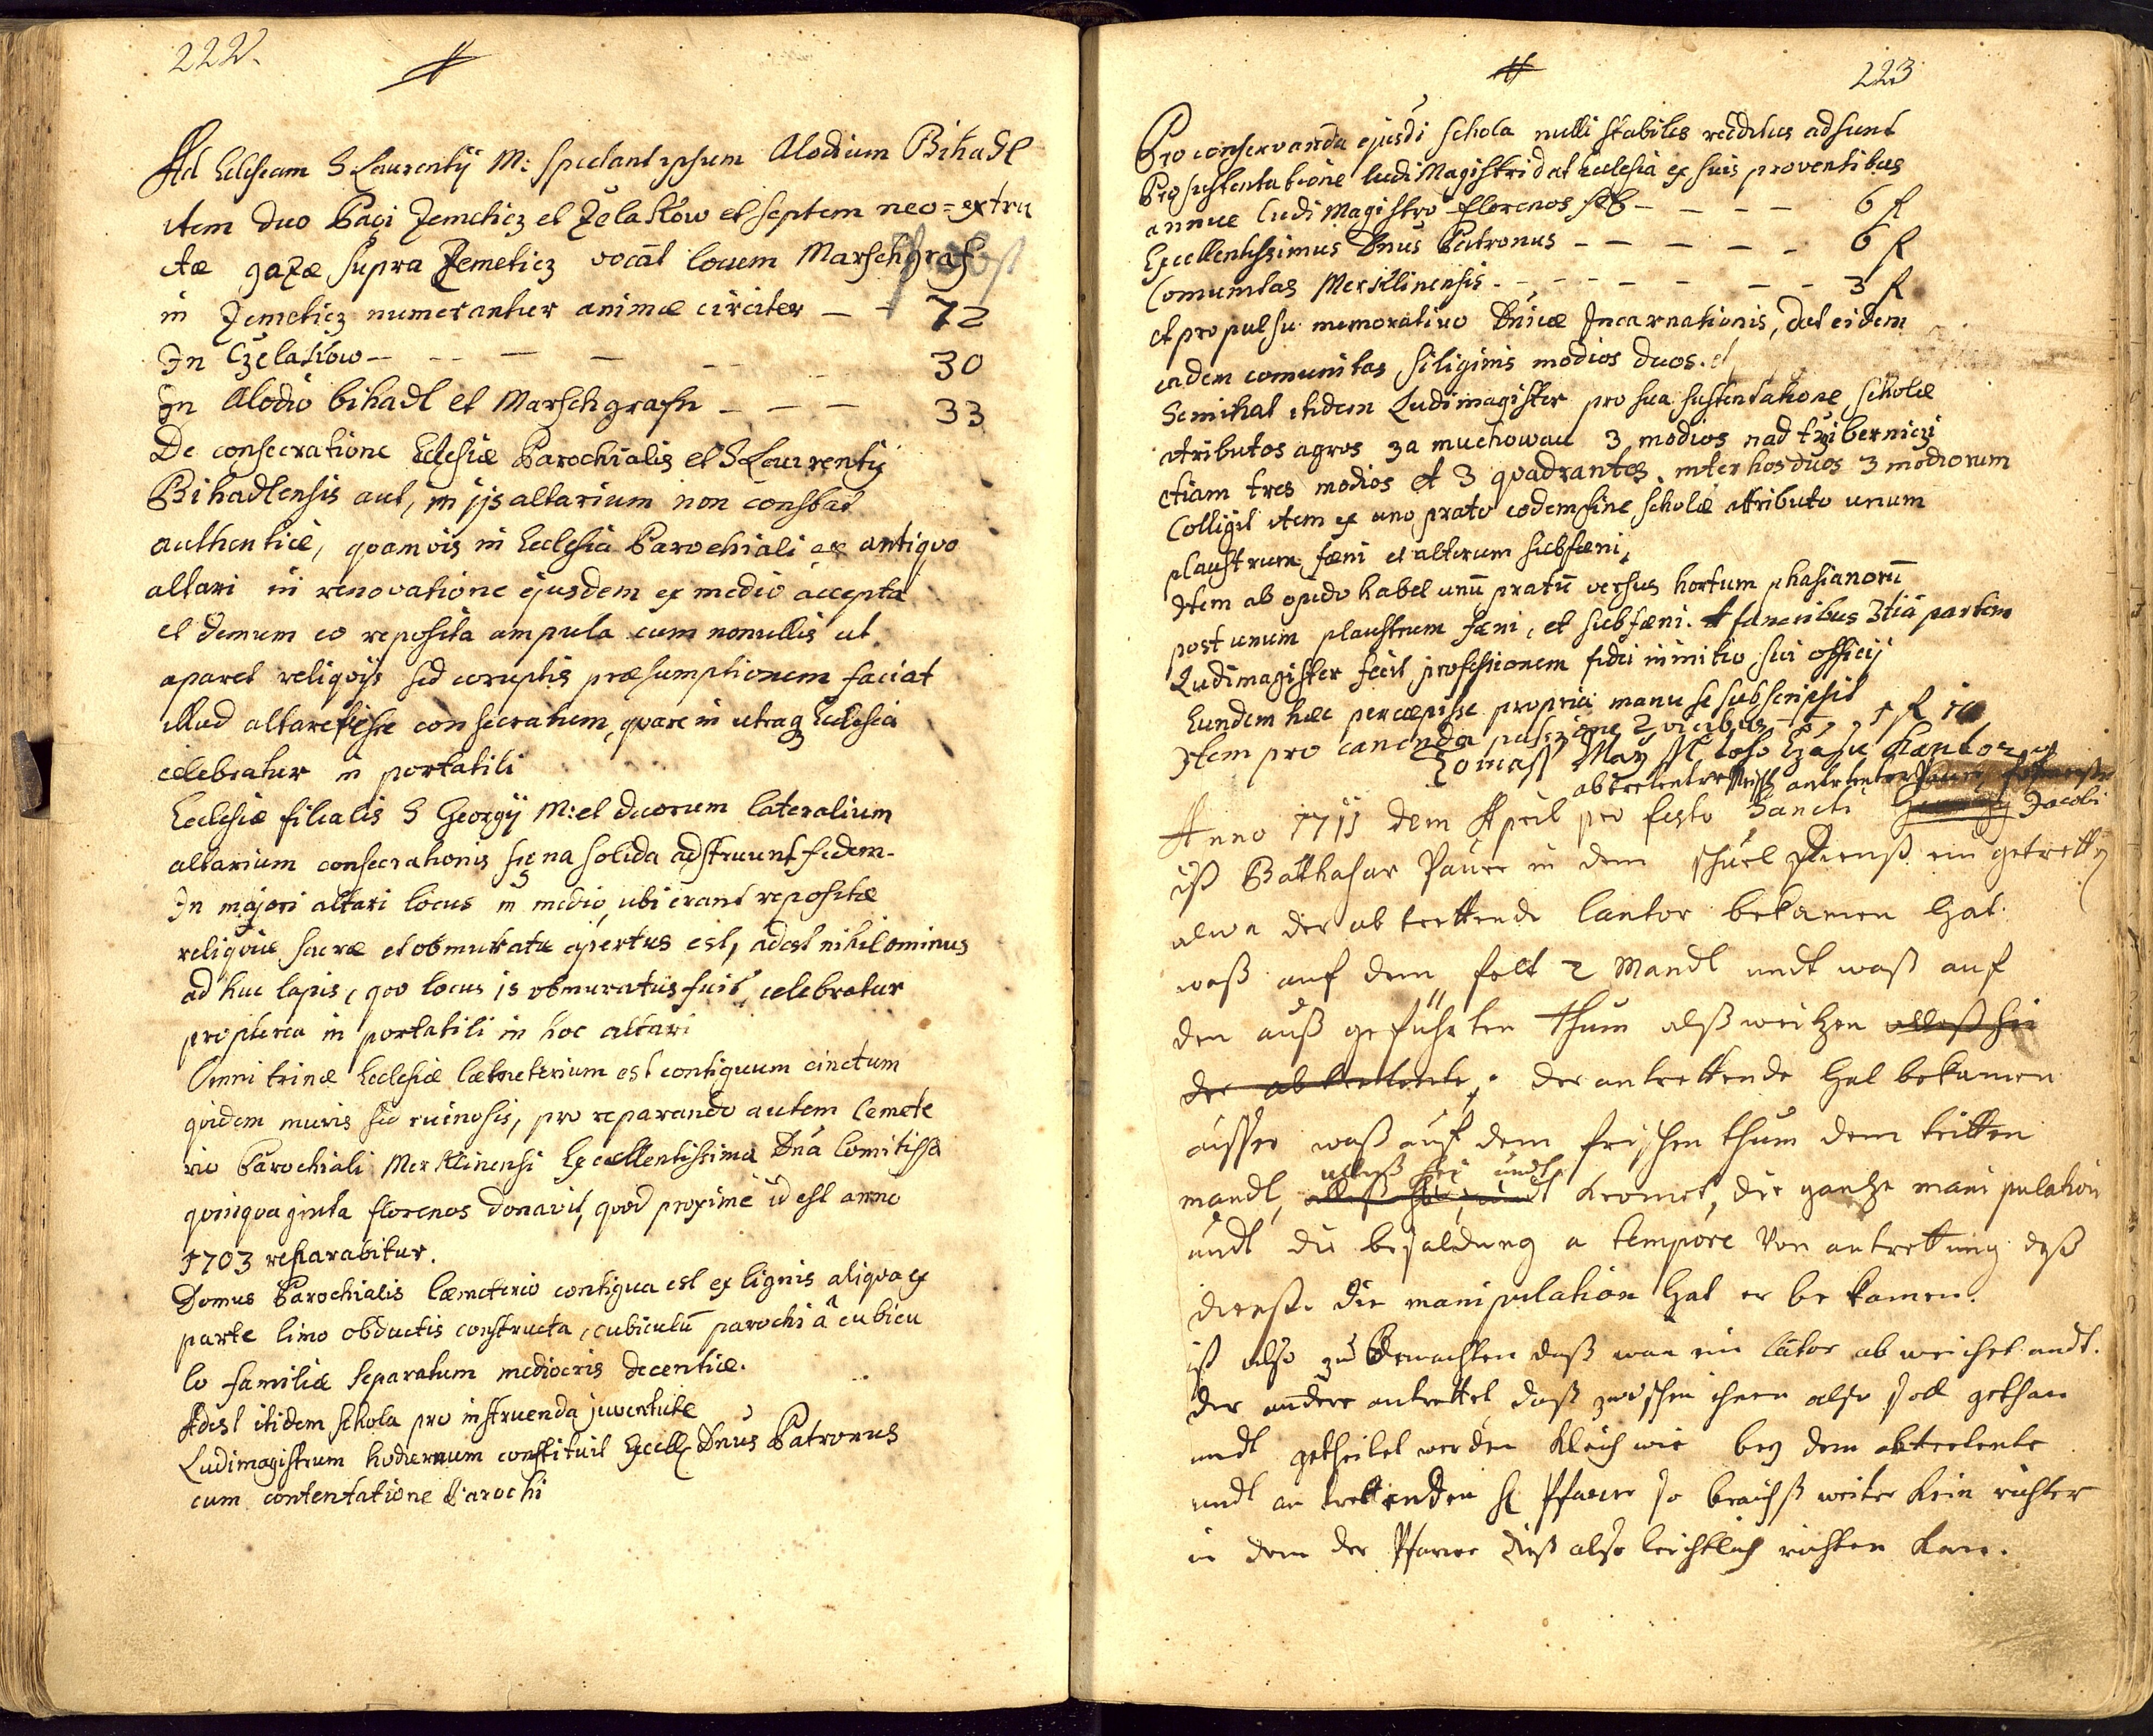 222.
Ad Eclesiam S Laurentij M: spectant ipsum Alodium Bihadl
item duo Pagi Zemeticz et Zelakow et septem neo=extru
ctæ gazæ supra Zemeticz vocāt locum Marschgraf
in Zemeticz numerantur animæ circiter – – 72
In Czelakow – – – – – 30
In Alodio bihadl et Marschgrafu – – – 33
De consecratione Eclesiæ Parochialis et S Laurentij
Bihadlensis aut, in ijs altarium non constat
authenticè, quamvis in Ecclesia Parochiali ex antiquo
altari in renovatione ejusdem ex medio accepta
et demum eo reposita ampula cum nonullis ut
aparet reliquijs sed coruptis præsumptionem faciat
illud altare fuisse consecratum, quare in utraq Ecclesia
celebratur in portatili
Ecclesiæ filialis S Georgij M: et duorum lateralium
altarium consecrationis signa solida adstruunt fidem.
In majori altari locus in medio, ubi erant repositæ
reliquiæ sacræ et obmuratæ apertus est, adest nihilominus
ad huc lapis, quo locus is obmuratus fuit, celebratur
propterea in portatili in hoc altari
Omni trinæ Ecclesiæ Cæmeterium est contiguum cinctum
quidem muris sed ruinosis, pro reparando autem Cemete
rio Parochiali Merklinensi Excellentissima Dnā Comitissa
quinquaginta florenos donavit, quod proximè id est anno
1703 reparabitur.
Domus Parochialis Cæmeterio contigua est ex lignis aliqua ex
parte limo obductis constructa, cubiculū parochi â cubicu
lo familiæ separatum mediocris decentiæ.
Adest itidem schola pro instruenda juventute
Ludimagistrum hodiernum constituit Excell: Dnūs Patronus
cum contentatione Parochi
223
Pro conservanda ejusdē schola nulli stabiles redditus adsunt
Pro sustentatione ludi Magistri dat Ecclesia ex suis proventibus
annue ludi Magistro florenos sex – – – – 6 fl
Excellentissimus Dnūs Patronus – – – – – 6 fl
Comunitas Merklinensis – – – – – – 3 fl
et pro pulsu memorativo Dnīcæ Incarnationis, dat eidem
eadem comunitas siliginis modios duos.
Seminat itidem Ludimagister pro sua sustentatione scholæ
atributos agros za muchowau 3 modios nad
etiam tres modios et 3 quadrantes. inter hos duos 3 modiorum
Colligit item ex uno prato eodem fine scholæ attributo unum
plaustrum fæni et alterum subfæni,
Item ab opido habet unū pratū versus hortum phasianorū
post unum plaustrum fæni, et subfæni. A funeribus 3tiā partem
Ludimagister fecit professionem fidei in initio sui officij
Eundem hæc percepisse propria manu se subscripsit
Item pro canenda passione 2 vicibus – – 1 fl
Tomass Kantor
Anno 1711 dem April pro festo Sancti Georgij Jacobi
ist Balthasar Pauer in dem schuel dienst ein getretten
alwo der ab trettende Cantor bekamen hat
waß auf dem felt 2 Mandl undt waß auf
den auß geführten thum alß weitzen alleß hei
der abtretente, der antrettende hat bekamen
ausser waß auf dem frischen thum dem tritten
alleß hei undt
mandl, alleß hei, undt kromet, die gantze manipulation
undt die besaldung a tempore von antrettung deß
dienst. die manipulation hat er be kamen.
ist also zu Bemachten daß wan ein Cātor ab weichet undt.
der andere antrettet daß zwischen ihnen also soll gethan
undt getheilet werden kleich wie bey dem abtretente
undt an trettenden H Pfarrer so brauchts weiter kein richter
in dem der Pfarrer dieß also leichtlich richten kan.